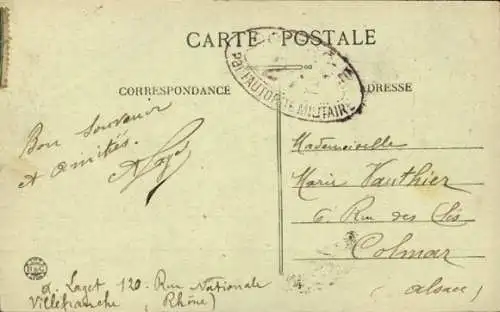 CARTE POSTALE
Par l'AUTORITÉ MILITAIRE
CORRESPONDANCE
ADRESSE
Bon souvenir
et amitiés.
Mademoiselle
Marie Vauthier
6. Rue des Clés
Colmar
(Alsace)
A. Laget 120. Rue Nationale
Villefranche (Rhône)